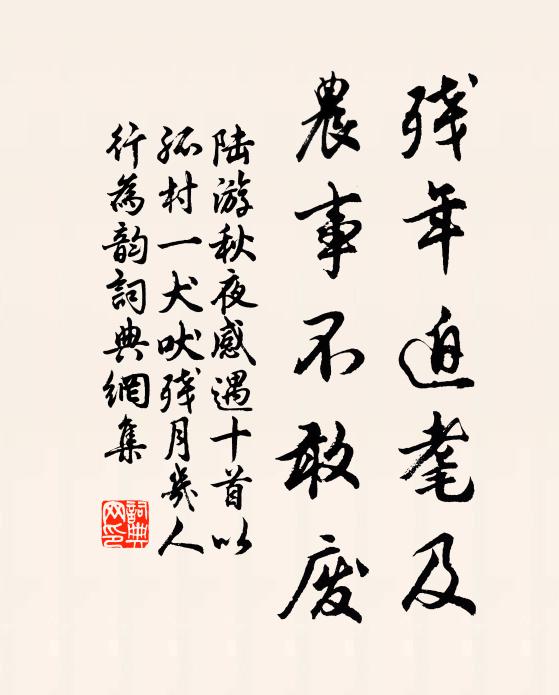 残年迫耄及
農事不敢废
陆游秋夜感遇十首以
孤村一犬吠残月幾人
行為韵詞典網集
詞典
网印